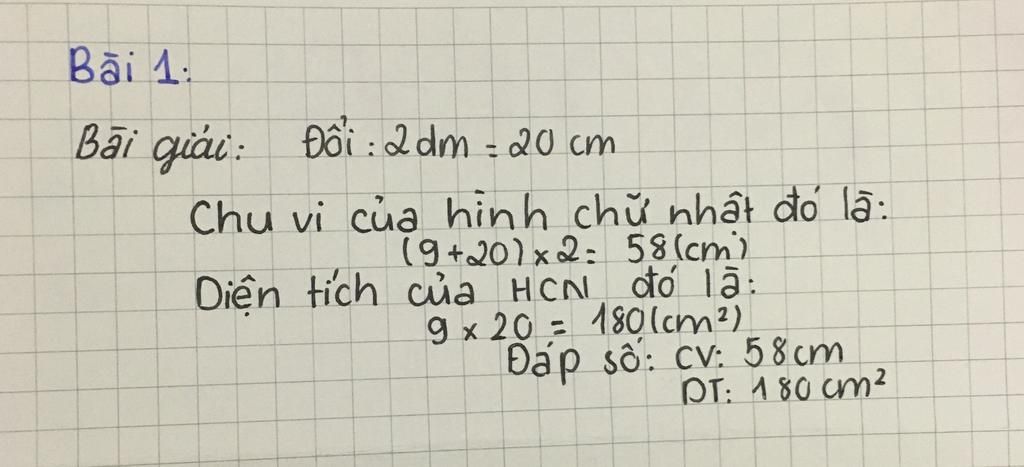 Bài 1:
Bài giải: Đổi: 2dm = 20 cm
Chu vi của hình chữ nhật đó là:
(9+20) x 2 = 58 (cm)
Diện tích của HCN đó là:
9 x 20 = 180 (cm²)
Đáp số: CV: 58cm
DT: 180 cm²